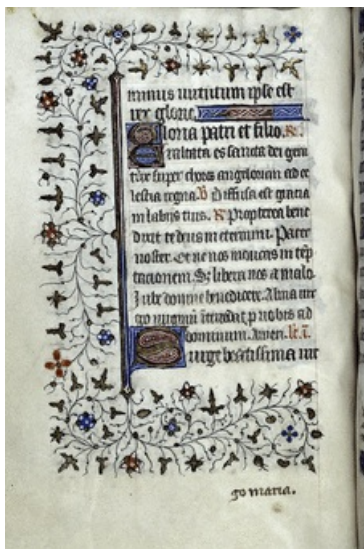 minus uirtutum ipse est
rex glorie.
Gloria patri et filio. &c.
Exaltata es sancta dei geni
trix super choros angelorum ad ce
lestia regna. V Diffusa est gratia
in labijs tuis. R Propterea bene
dixit te deus in eternum. Pater
noster. Et ne nos inducas in tẽp
tacionem. Sz libera nos a malo.
Iube domne benedicere. Alma uir
go uirginũ ĩtercedat p nobis ad
dominum. Amen. lc. i.
Surge beatissima uir
go maria.